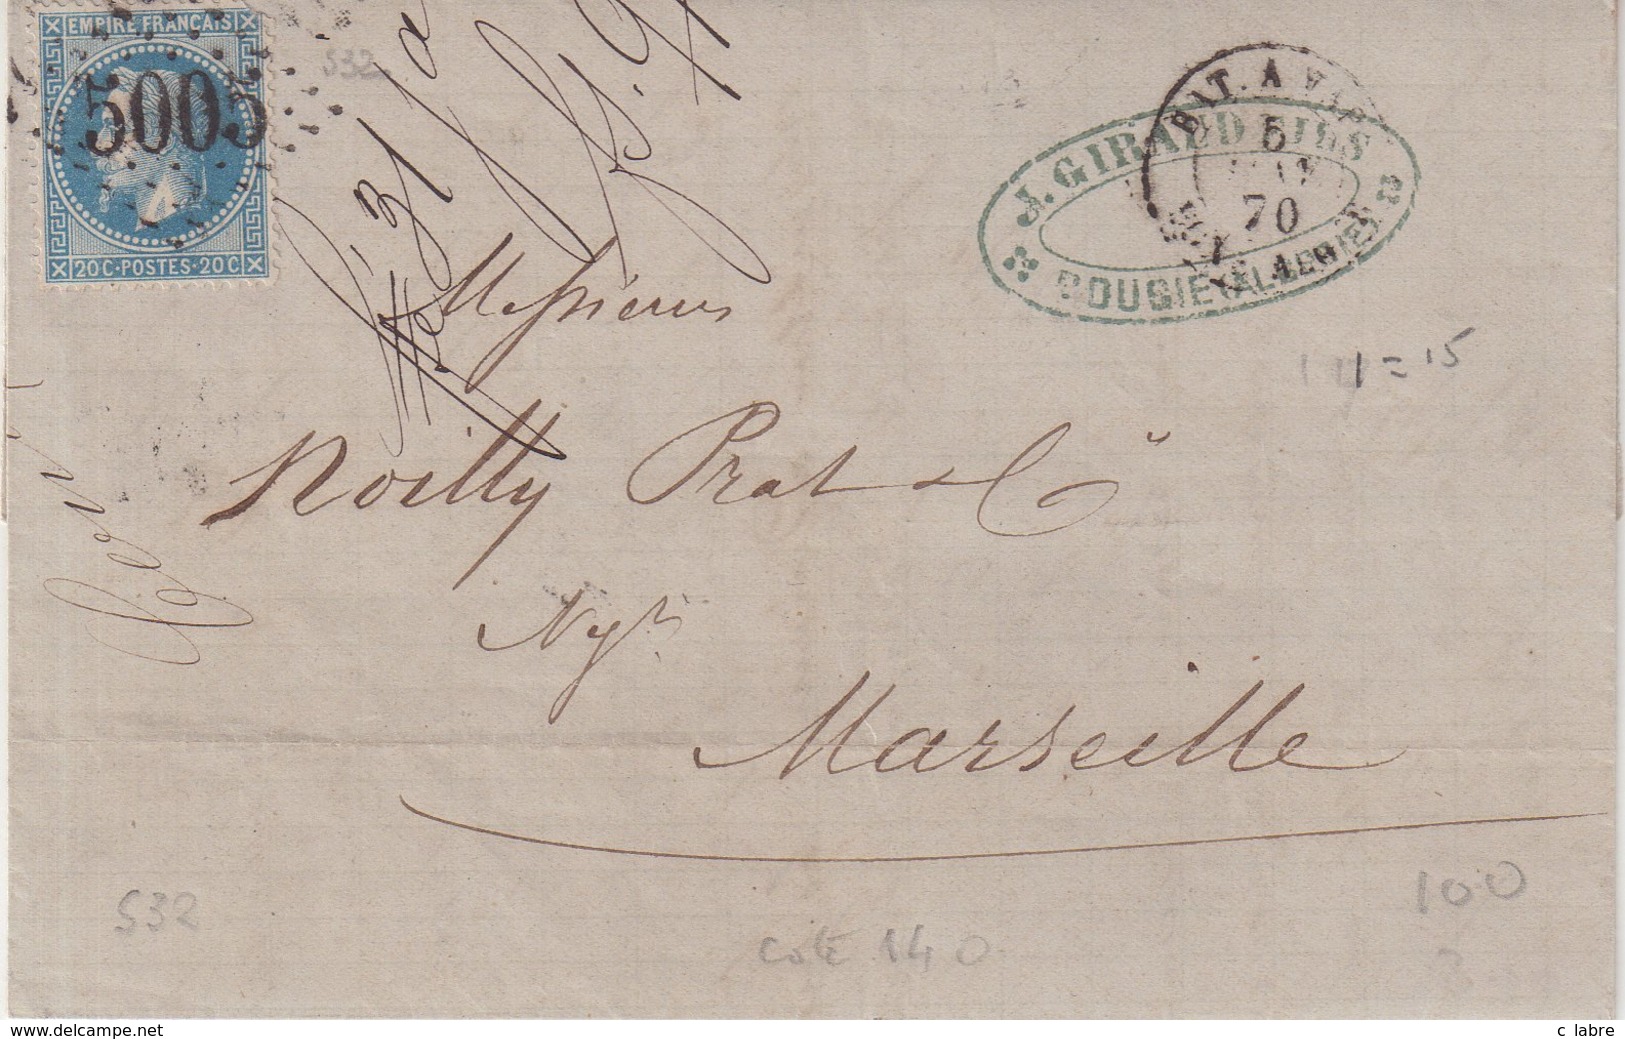 EMPIRE FRANÇAIS
5005
20C·POSTES·20C
532
BAT. A VAP
5
70
J. GIRAUD FILS
BOUGIE (ALGERIE)
Messieurs
Noilly Prat & Cie
Nég.ts
Marseille
= 15
532
cote 140
100
www.delcampe.net
c labre